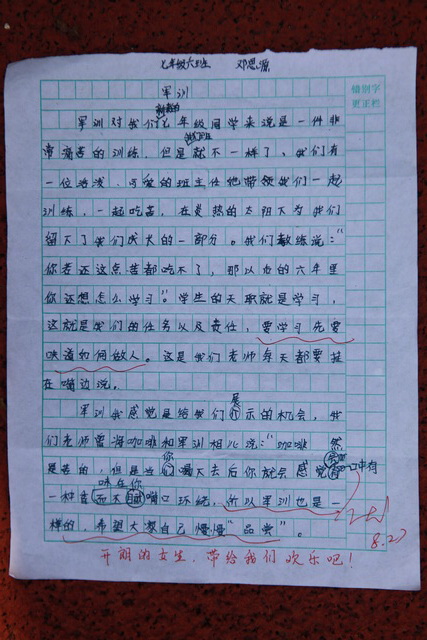 七年级六班 邓思源
错别字
更正栏
军训
军训对我们七年级同学来说是一件非
常痛苦的训练，但是就不一样了、我们有
一位活泼、可爱的班主任他带领我们一起
训练，一起吃苦，在炎热的太阳下为我们
留下了我们成长的一部分。我们教练说：“
你若还这点苦都吃不了，那以后的六年里
你还想怎么学习”。学生的天职就是学习，
这就是我们的任务以及责任，要学习先要
知道如何做人。这是我们老师每天都要挂
在嘴边说。
军训我感觉是给我们展示的机会，我
们老师曾将咖啡和军训相比说：“咖啡 然
是苦的，但是当你喝下去后你就会感觉有
一种 味在你嘴口环绕，所以军训也是一
样的，希望大家自己慢慢“品尝”。
8.27
开朗的女生，带给我们欢乐吧！